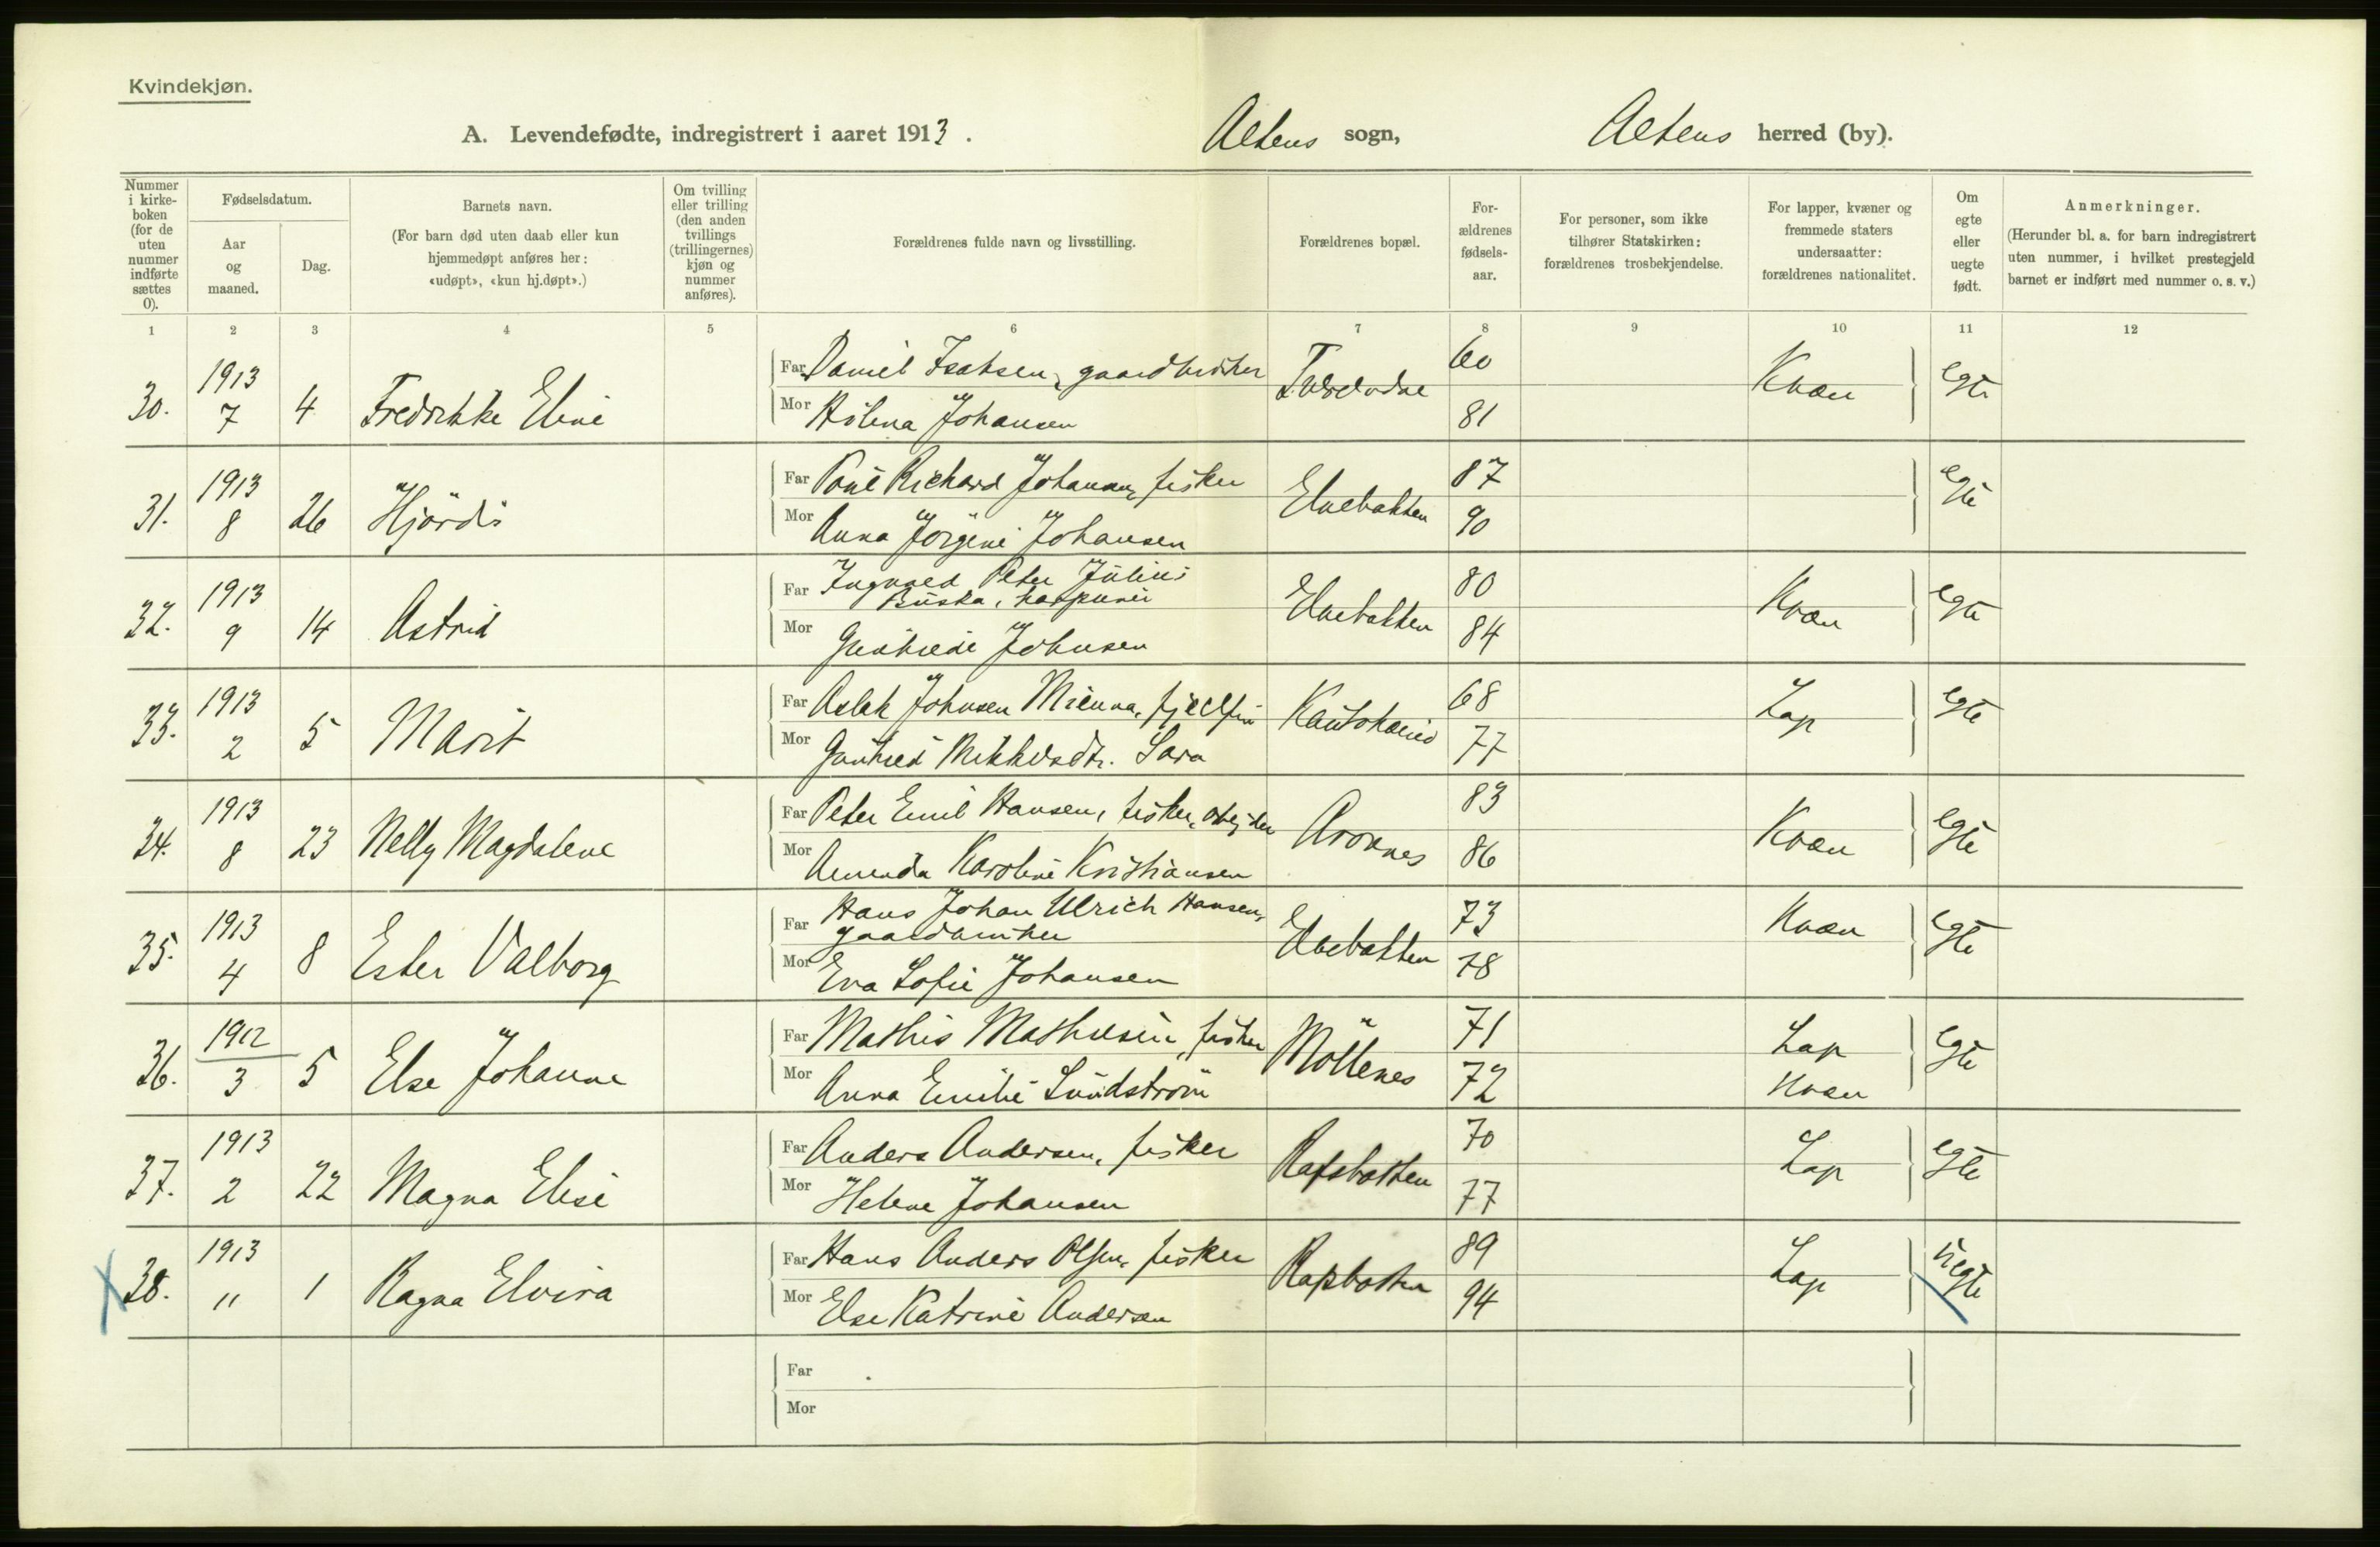 Kvindekjøn.
A. Levendefødte, indregistrert i aaret 1913. Altens sogn, Altens herred (by).
Nummer i kirkeboken (for de uten nummer indførte sættes 0).
Fødselsdatum.
Aar og maaned.
Dag.
Barnets navn.
(For barn død uten daab eller kun hjemmedøpt anføres her: «udøpt», «kun hj.døpt».)
Om tvilling eller trilling (den anden tvillings (trillingernes) kjøn og nummer anføres).
Forældrenes fulde navn og livsstilling.
Forældrenes bopæl.
Forældrenes fødselsaar.
For personer, som ikke tilhører Statskirken: forældrenes trosbekjendelse.
For lapper, kvæner og fremmede staters undersaatter: forældrenes nationalitet.
Om egte eller uegte født.
Anmerkninger.
(Herunder bl. a. for barn indregistrert uten nummer, i hvilket prestegjeld barnet er indført med nummer o. s. v.)
1 2 3 4 5 6 7 8 9 10 11 12
30. 1913 7 4 Fredrikke Eline
Far Daniel Isaksen, gaardbruker 60
Mor Helena Johansen 81
Kvæn egte
31. 1913 8 26 Hjördis
Far Poul Richard Johansen, fisker Elvebakken 87
Mor Anna Jörgine Johansen 90
egte
32. 1913 9 14 Astrid
Far Ingvald Peter Julius Buska, harpuner Elvebakken 80
Mor Johnsen 84
Kvæn egte
33. 1913 2 5 Marit
Far Aslak Johnsen Mienna, fjeldfin Kautokeino 68
Mor Gunhild Mikkelsdtr. Sara 77
Lap egte
34. 1913 8 23 Nelly Magdalene
Far Peter Emil Hansen, fisker, arbeider Aronnes 83
Mor Amanda Karoline Kristiansen 86
Kvæn egte
35. 1913 4 8 Ester Valborg
Far Hans Johan Ulrich Hansen, gaardbruker Elvebakken 73
Mor Eva Sofie Johansen 78
Kvæn egte
36. 1912 3 5 Else Johanne
Far Mathis Mathisen, fisker Möllenes 71 Lap
Mor Anna Emilie Lundström 72 Kvæn
egte
37. 1913 2 22 Magna Elise
Far Anders Andersen, fisker Rafsbotten 70
Mor Helene Johansen 77
Lap egte
X 38. 1913 " 1 Ragna Elvira
Far Hans Anders Olsen, fisker Rafsbotten 89
Mor Else Katrine Andersen 94
Lap uegte
Far
Mor